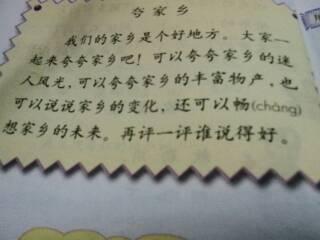 夸家乡
我们的家乡是个好地方。大家一
起来夸夸家乡吧！可以夸夸家乡的迷
人风光，可以夸夸家乡的丰富物产，也
可以说说家乡的变化，还可以畅(chàng)
想家乡的未来。再评一评谁说得好。